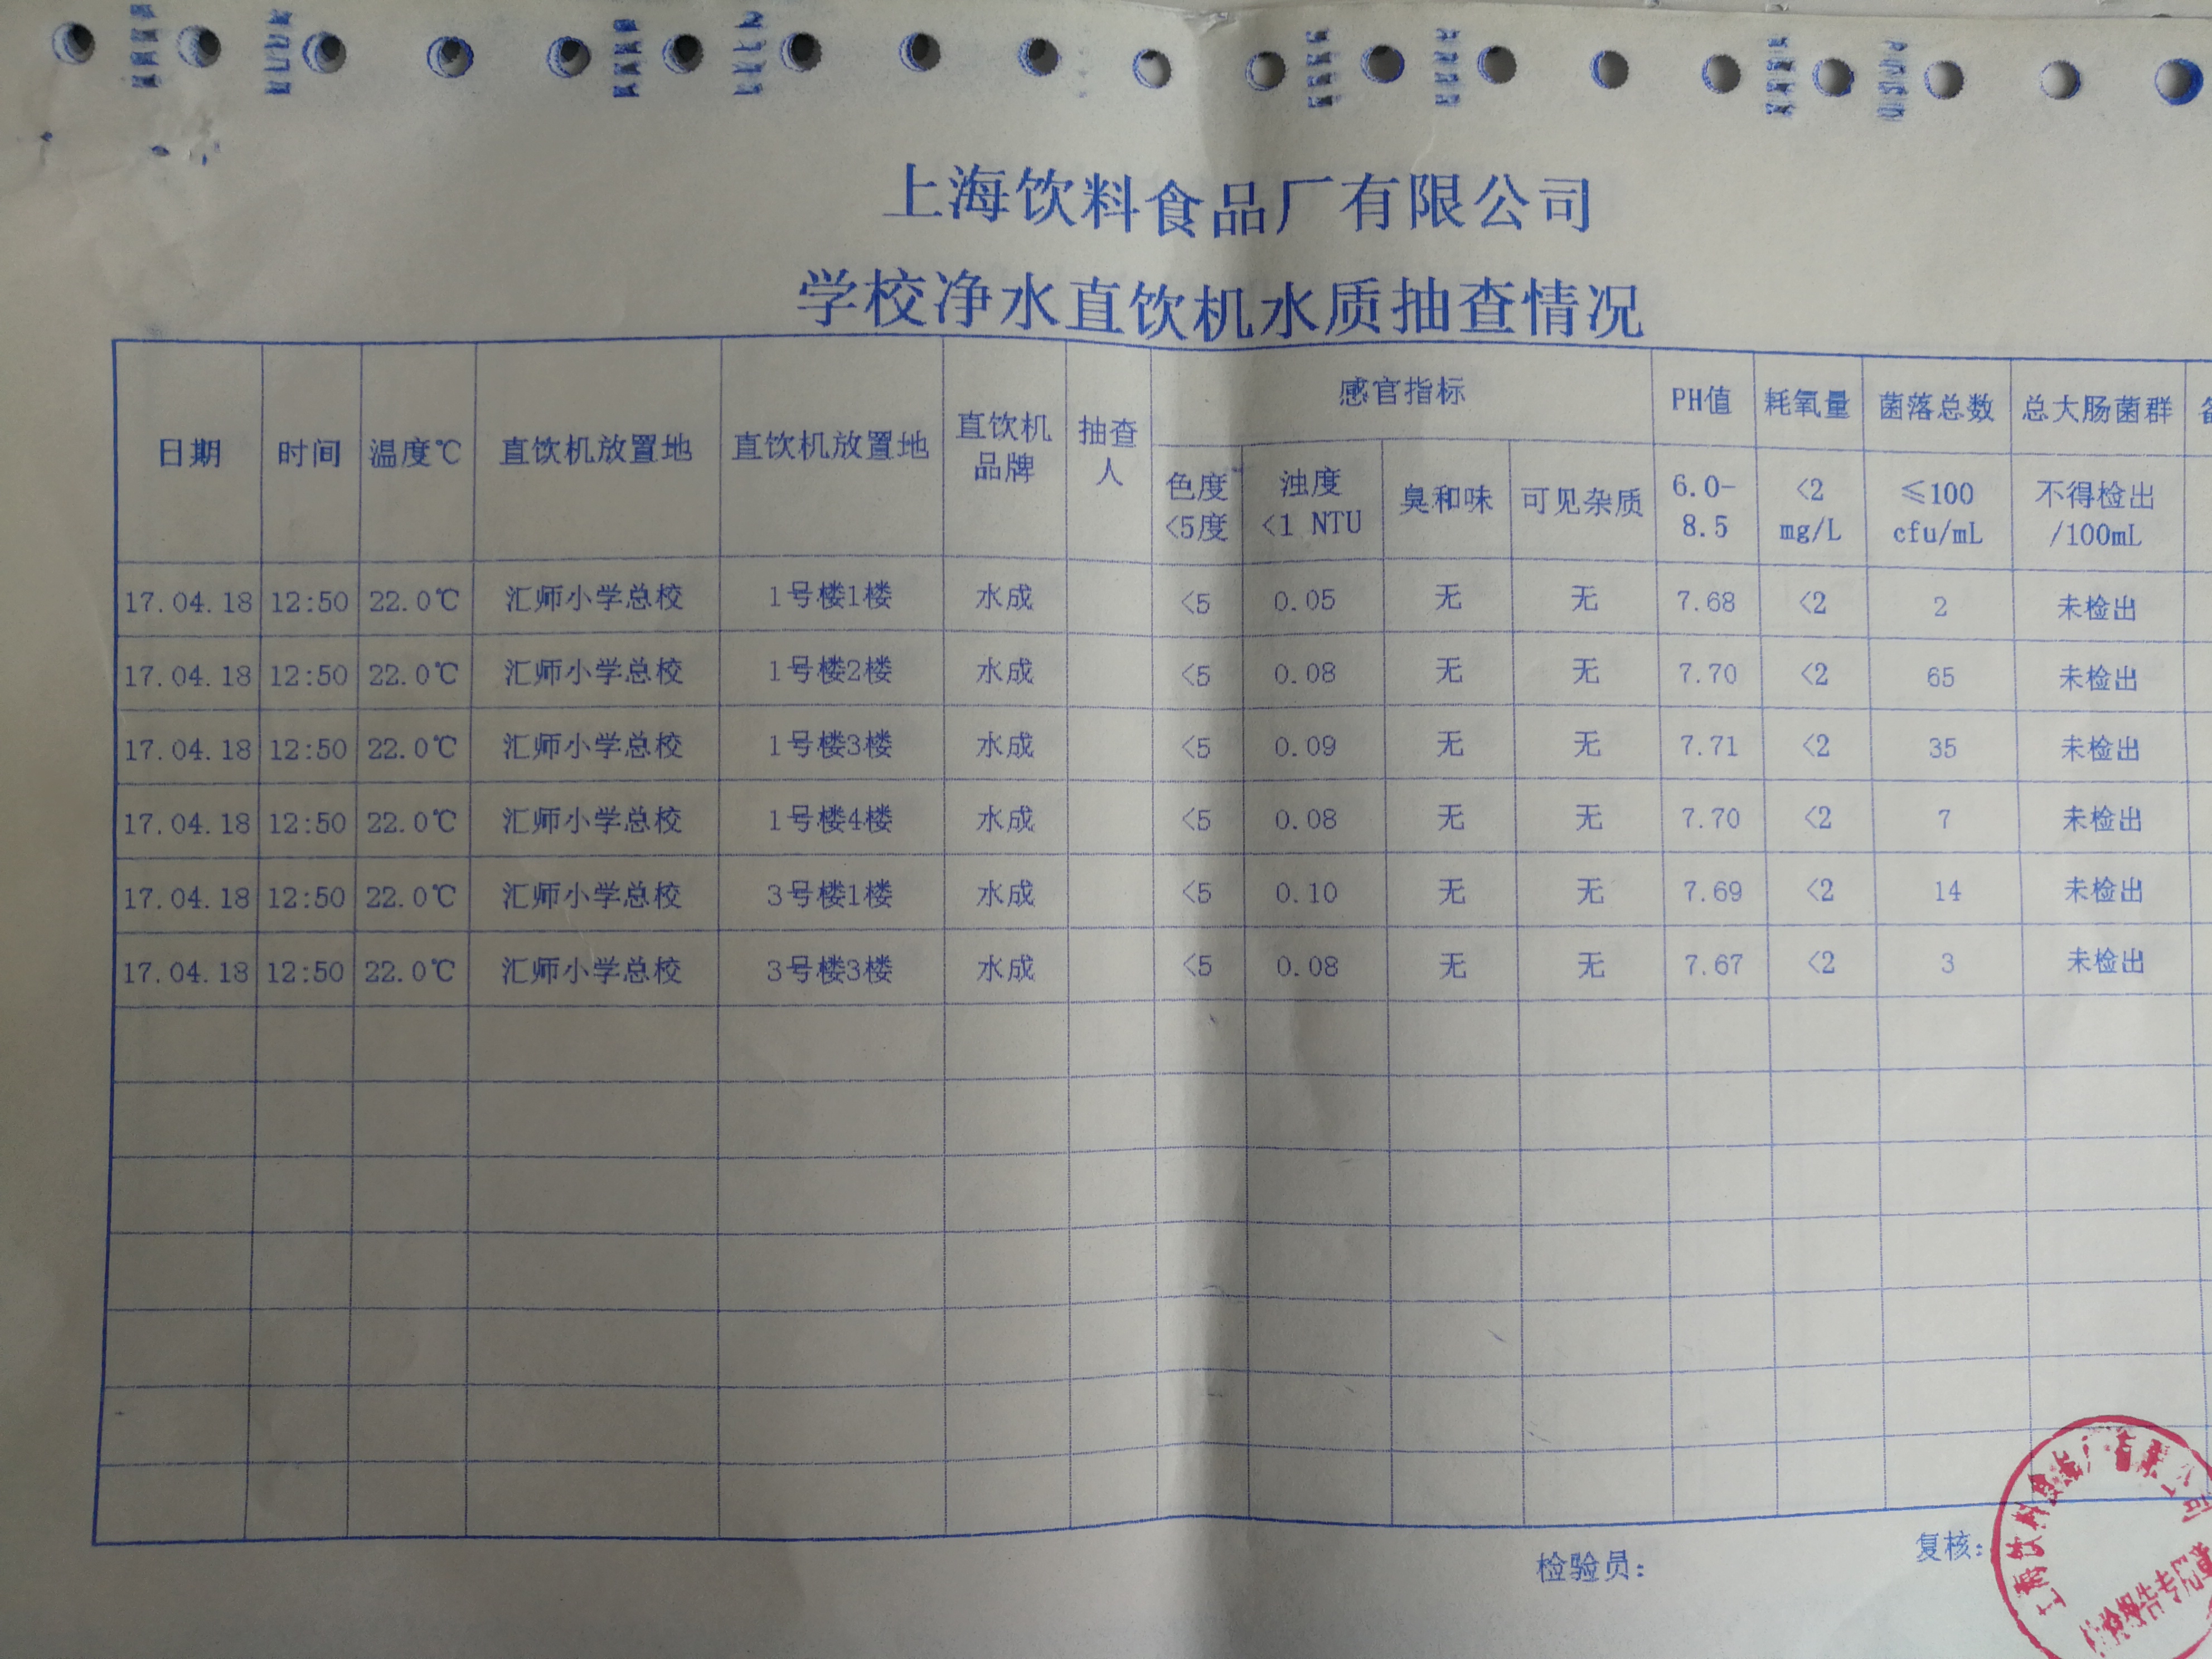 上海饮料食品厂有限公司
学校净水直饮机水质抽查情况
日期 时间 温度℃ 直饮机放置地 直饮机放置地 直饮机品牌 抽查人 感官指标 PH值 耗氧量 菌落总数 总大肠菌群
色度<5度 浊度<1 NTU 臭和味 可见杂质 6.0-8.5 <2 mg/L ≤100 cfu/mL 不得检出/100mL
17.04.18 12:50 22.0℃ 汇师小学总校 1号楼1楼 水成 <5 0.05 无 无 7.68 <2 2 未检出
17.04.18 12:50 22.0℃ 汇师小学总校 1号楼2楼 水成 <5 0.08 无 无 7.70 <2 65 未检出
17.04.18 12:50 22.0℃ 汇师小学总校 1号楼3楼 水成 <5 0.09 无 无 7.71 <2 35 未检出
17.04.18 12:50 22.0℃ 汇师小学总校 1号楼4楼 水成 <5 0.08 无 无 7.70 <2 7 未检出
17.04.18 12:50 22.0℃ 汇师小学总校 3号楼1楼 水成 <5 0.10 无 无 7.69 <2 14 未检出
17.04.18 12:50 22.0℃ 汇师小学总校 3号楼3楼 水成 <5 0.08 无 无 7.67 <2 3 未检出
检验员: 复核:
上海饮料食品厂有限公司
报告专用章